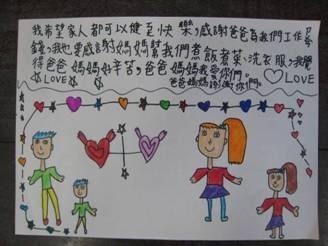 我希望家人都可以健㐀快樂,感謝爸爸為我們工作
錢,我也要感謝媽媽幫我們煮飯煮菜、洗衣服,我覺
得爸爸媽媽好辛苦,爸爸媽媽我愛你們。
LOVE 爸爸媽媽謝謝你們。 LOVE